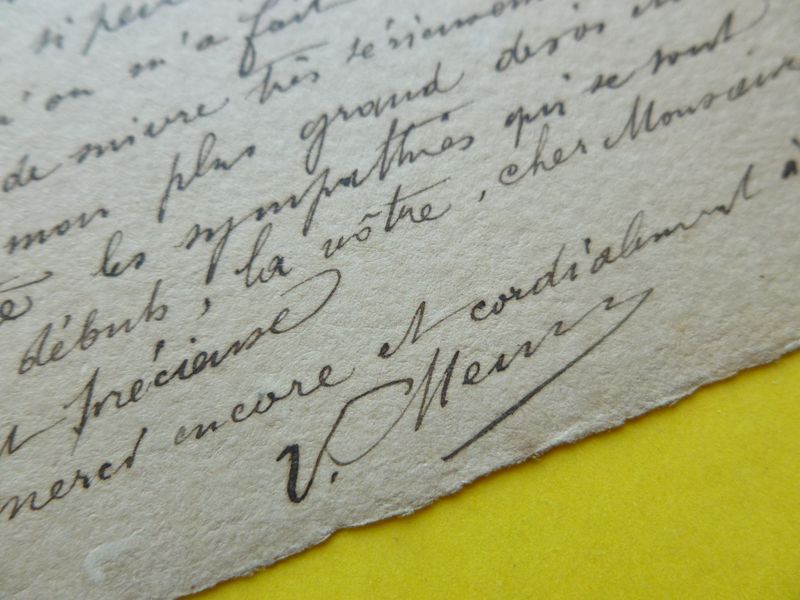 si peu
qu'on m'a fait
de suivre très sérieusement
mon plus grand désir
les sympathies qui se sont
débuts, la vôtre, cher Monsieur
précieuse
merci encore et cordialement à
V.